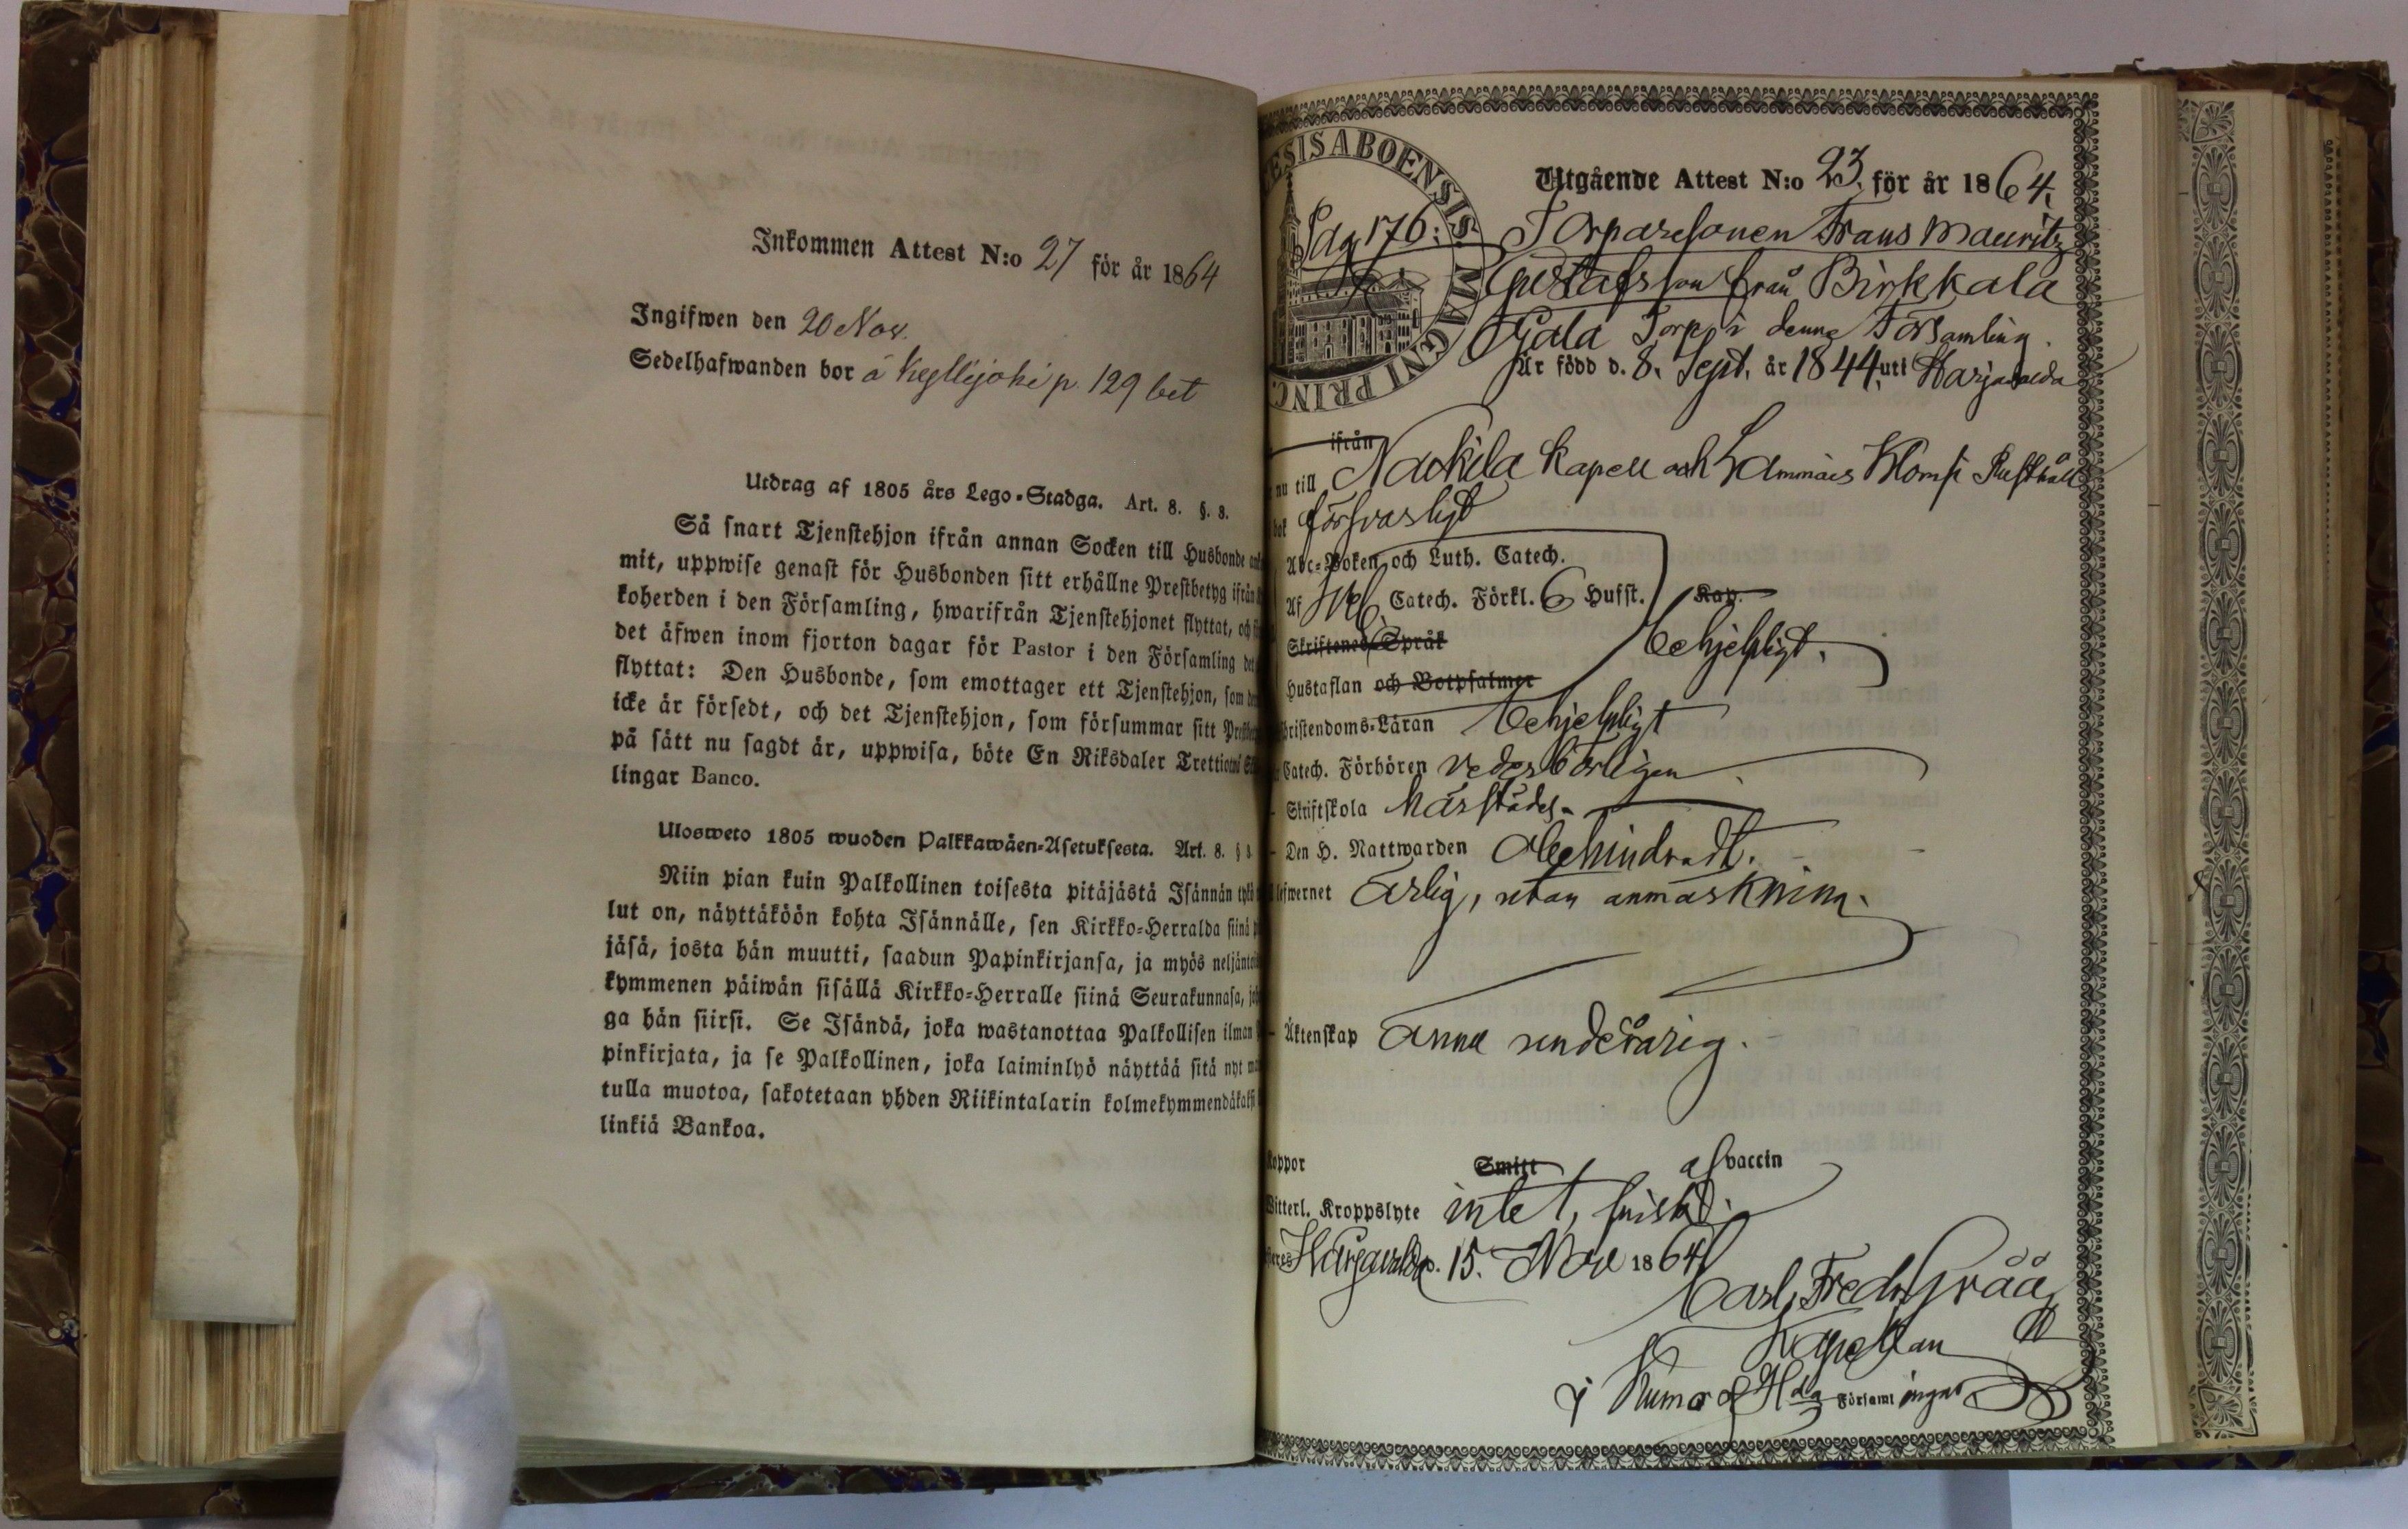 Inkommen Attest N:o 27 för år 1864
Ingifwen den 20 Nov.
Sedelhafwanden bor å Kyllijoki p. 129 bet
Utdrag af 1805 års Lego-Stadga. Art. 8. §. 8.
Så snart Tjenstehjon ifrån annan Socken till Husbonde
mit, uppwise genast för Husbonden sitt erhållne Prestbetyg ifrån
koherden i den Församling, hwarifrån Tjenstehjonet flyttat, och
det äfwen inom fjorton dagar för Pastor i den Församling
flyttat: Den Husbonde, som emottager ett Tjenstehjon, som
icke är försedt, och det Tjenstehjon, som försummar sitt
på sätt nu sagdt är, uppwisa, böte En Riksdaler
lingar Banco.
Ulosweto 1805 wuoden Palkkawäen-Asetuksesta. Art. 8. §
Niin pian kuin Palkollinen toisesta pitäjästä Isännän
lut on, näyttäköön kohta Isännälle, sen Kirkko-Herralda siinä
jäsä, josta hän muutti, saadun Papinkirjansa, ja myös
kymmenen päiwän sisällä Kirkko-Herralle siinä Seurakunnasa,
ga hän siirsi. Se Isändä, joka wastanottaa Palkollisen ilman
pinkirjata, ja se Palkollinen, joka laiminlyö näyttää sitä nyt
tulla muotoa, sakotetaan yhden Riikintalarin
linkiä Bankoa.
ESIS ABOENSIS MAGNI PRINC
Pag 176:
Utgående Attest N:o 23, för år 1864.
Torparesonen Frans Mauritz
Gustafsson från Birkkala
Torp i denna Församling.
Är född d. 8. Sept. år 1844 uti Harjavalda
ifrån
nu till Nackila Kapell och Lammais Klomsi Rusthåll
bok försvarligt
Abc-Boken och Luth. Catech.
Af Catech. Förkl. 6 Hufst. Kap.
Skriftenes Språk behjelpligt.
Hustaflan och Botpsalmer
hristendoms-Läran behjelpligt
Catech. Förhören vederbörligen
Skriftskola härstädes
Den H. Nattwarden obehindradt.
efwernet ärlig, utan anmärkning.
Äktenskap ännu underårig.
koppor Smitt af vaccin
Witterl. Kroppslyte intet, frisk
Harjavalda d. 15. Nov 1864
Carl Fredr Gråå
Kapellan
i Kumo o Hda Församlingar